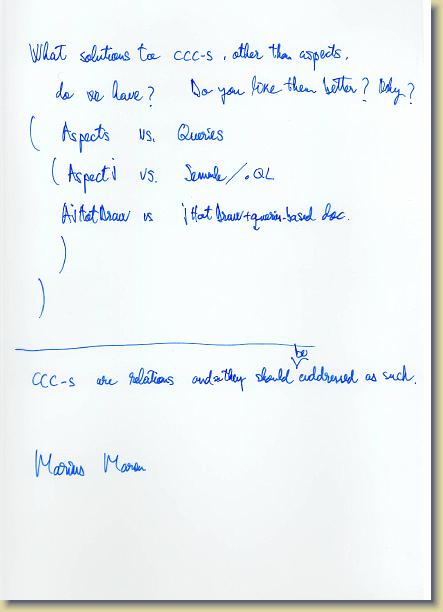 What solutions to CCC-s, other than aspects,
do we have? Do you like them better? Why?
( Aspects vs. Queries
( AspectJ vs. Semmle/.QL
AjHotDraw vs jHotDraw+queries-based doc.
)
)
be
CCC-s are relations and they should addressed as such.
Marius Marin